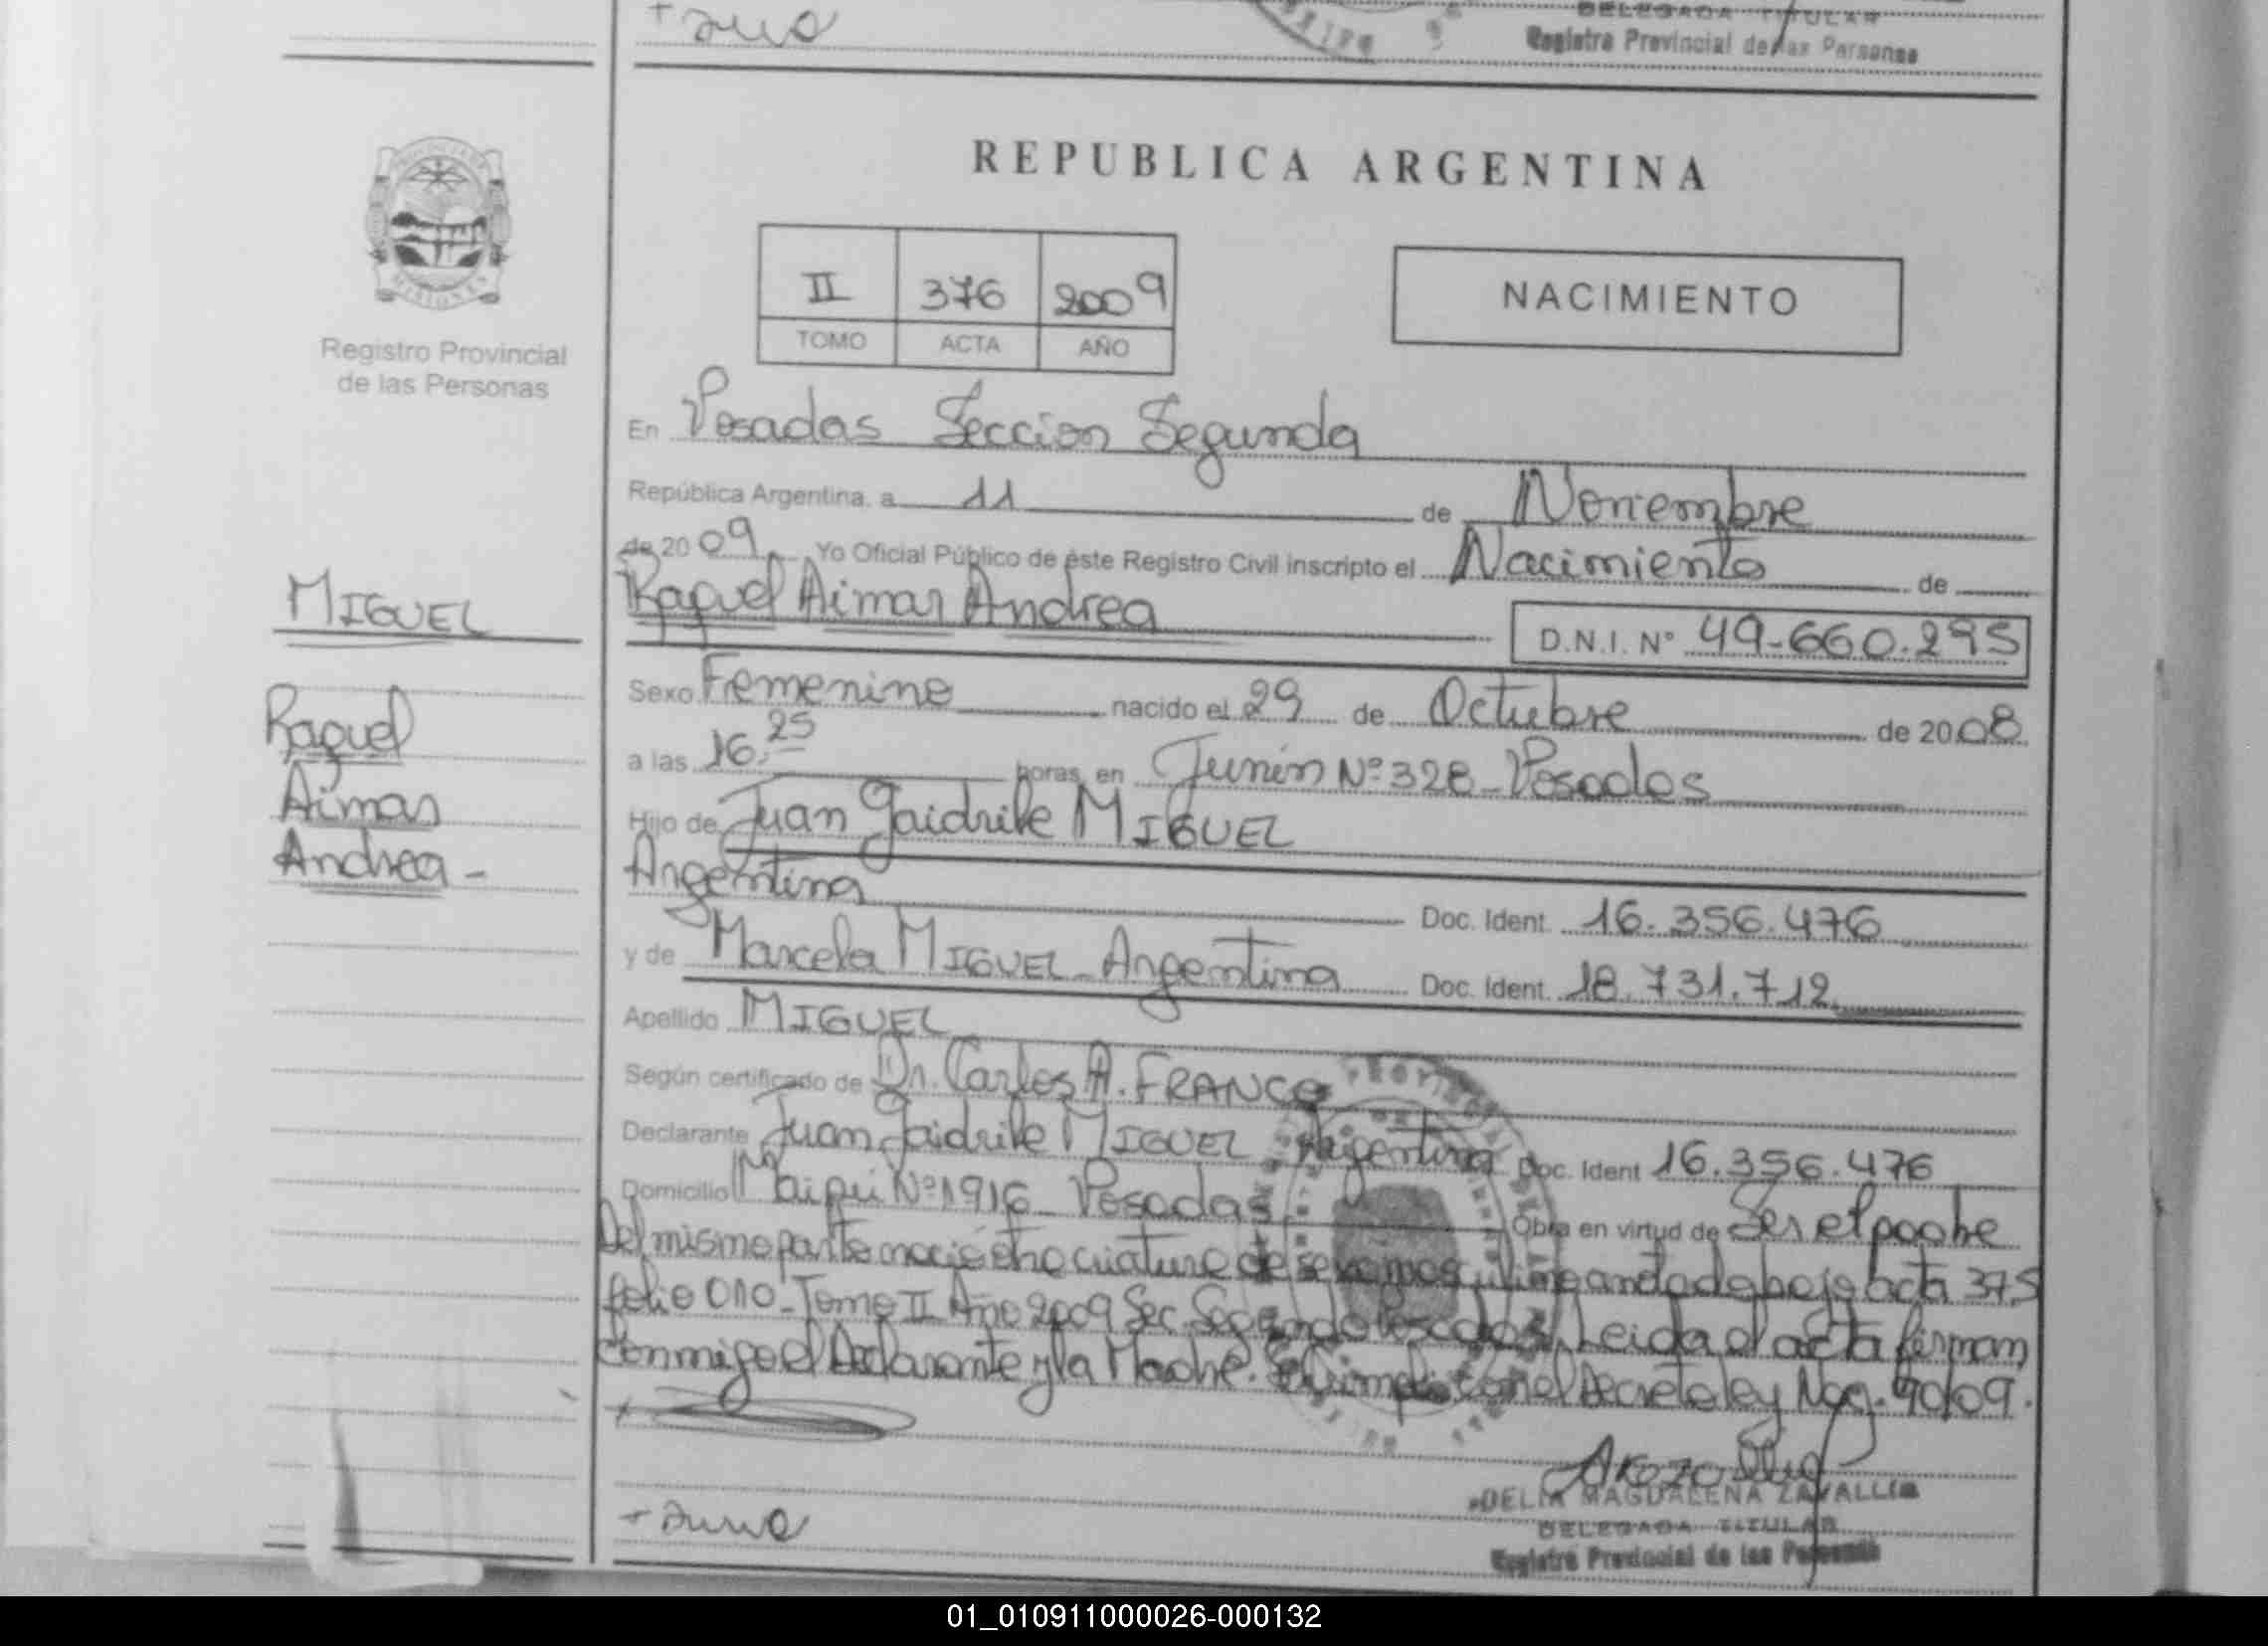 DELEGADA TITULAR
Registro Provincial de las Personas
REPUBLICA ARGENTINA
II 376 2009
TOMO ACTA AÑO
NACIMIENTO
PROVINCIA DE
MISIONES
Registro Provincial
de las Personas
MIGUEL
Raquel
Aimar
Andrea -
En Posadas Seccion Segunda
República Argentina, a 11 de Noviembre
de 2009, Yo Oficial Público de éste Registro Civil inscripto el Nacimiento de
Raquel Aimar Andrea
D.N.I. Nº 49-660.295
Sexo Femenino nacido el 29 de Octubre de 2008
a las 16,25 horas, en Junín Nº 328 - Posadas
Hijo de Juan MIGUEL
Argentina Doc. Ident. 16.356.476
y de Marcela MIGUEL - Argentina Doc. Ident. 18.731.712
Apellido MIGUEL
Según certificado de Dr. Carlos A. FRANCO
Declarante Juan MIGUEL Argentina Doc. Ident 16.356.476
Domicilio Maipú Nº 1916 - Posadas Obra en virtud de Ser el padre
Del mismo parto nació otra criatura de sexo anotada bajo acta 375
folio 010 - Tomo II Año 2009 Sec. Segunda Posadas. Leida el acta firman
conmigo el Declarante y la Madre. con el Decreto ley Nac. 90/09.
DELIA MAGDALENA ZAVALLIA
DELEGADA TITULAR
Registro Provincial de las Personas
01_010911000026-000132